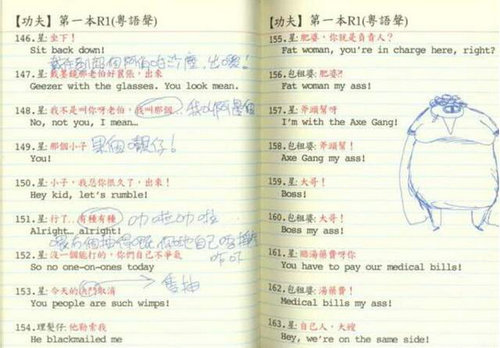 【功夫】第一本R1(粵語聲)
146.星:坐下！
Sit back down!
147.星:戴墨鏡那老伯好囂張，出來
Geezer with the glasses. You look mean.
148.星:我不是叫你呀老伯，我叫那個
No, not you, I mean…
149.星:那個小子
果個𡃁仔！
You!
150.星:小子，我忍你很久了，出來！
Hey kid, let's rumble!
151.星:行了…有種有種
Alright… alright!
152.星:沒一個能打的，你們自己不爭氣
So no one-on-ones today
153.星:今天的決鬥取消
You people are such wimps!
154.理髮仔:他勒索我
He blackmailed me
【功夫】第一本R1(粵語聲)
155.星:肥婆，你就是負責人？
Fat woman, you're in charge here, right?
156.包租婆:肥婆？
Fat woman my ass!
157.星:斧頭幫呀
I'm with the Axe Gang!
158.包租婆:斧頭幫！
Axe Gang my ass!
159.星:大哥！
Boss!
160.包租婆:大哥！
Boss my ass!
161.星:賠湯藥費呀你
You have to pay our medical bills!
162.包租婆:湯藥費！
Medical bills my ass!
163.星:自己人，大嫂
Hey, we're on the same side!